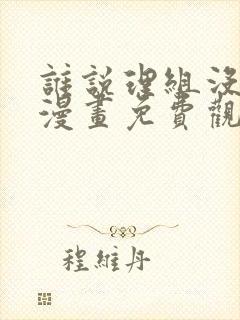 誰說理組沒
漫畫免費觀
程維丹